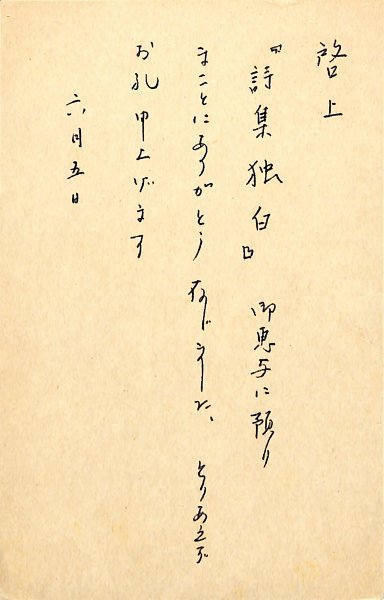 啓上
『詩集独白』 御恵与に預り
まことにありがとう存じました、とりあえず
お礼申上げます
六月五日